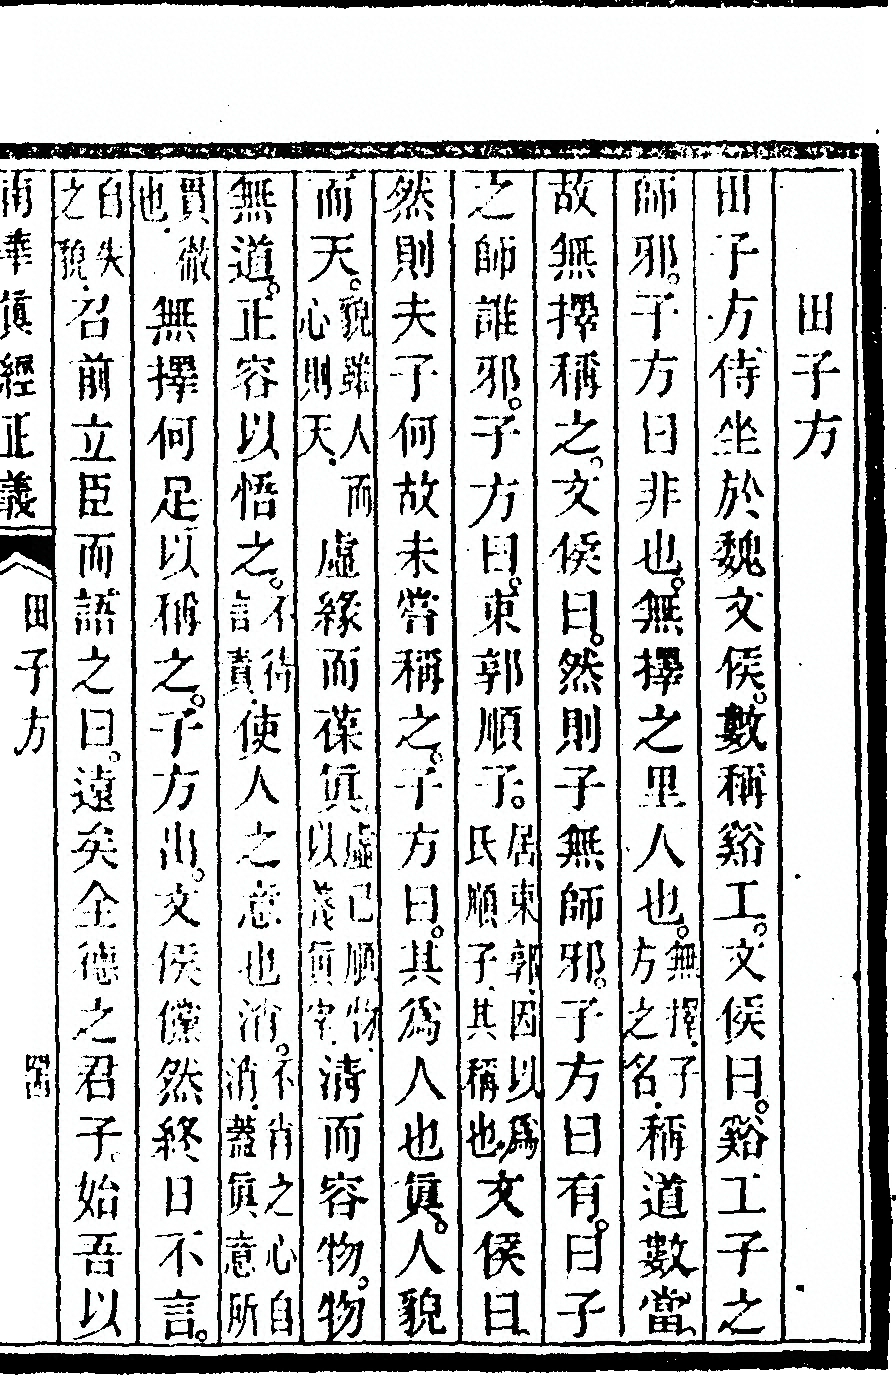 田子方
田子方侍坐於魏文侯。數稱谿工。文侯曰。谿工子之
師邪。子方曰非也。無擇之里人也。無擇.子方之名.稱道數當、
故無擇稱之。文侯曰。然則子無師邪。子方曰有。曰子
之師誰邪。子方曰。東郭順子。居東郭.因以爲氏順子.其稱也.文侯曰、
然則夫子何故未嘗稱之。子方曰。其爲人也眞。人貌
而天。貌雖人而心則天.虛緣而葆眞.虛己順物.以葆眞宰清而容物。物
無道。正容以悟之。不待言責.使人之意也消。不肖之心自消.蓋眞意所
貫徹也.無擇何足以稱之。子方出。文侯儻然終日不言。
自失之貌.召前立臣而語之曰。遠矣全德之君子.始吾以
南華眞經正義 田子方